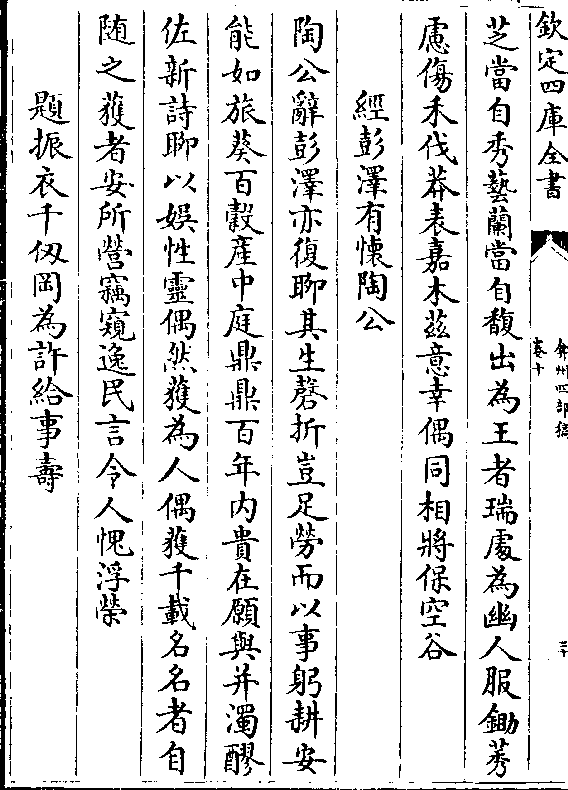 欽定四庫全書
弇州四部稿
卷十
芝當自秀藝蘭當自馥出為王者瑞處為幽人服鋤莠
慮傷禾伐莽表嘉木茲意幸偶同相將保空谷
經彭澤有懷陶公
陶公辭彭澤亦復聊其生磬折豈足勞而以事躬耕安
能如旅葵百穀產中庭鼎鼎百年內貴在願與并濁醪
佐新詩聊以娛性靈偶然獲為人偶獲千載名名者自
隨之獲者安所營竊窺逸民言令人愧浮榮
題振衣千仞岡為許給事壽